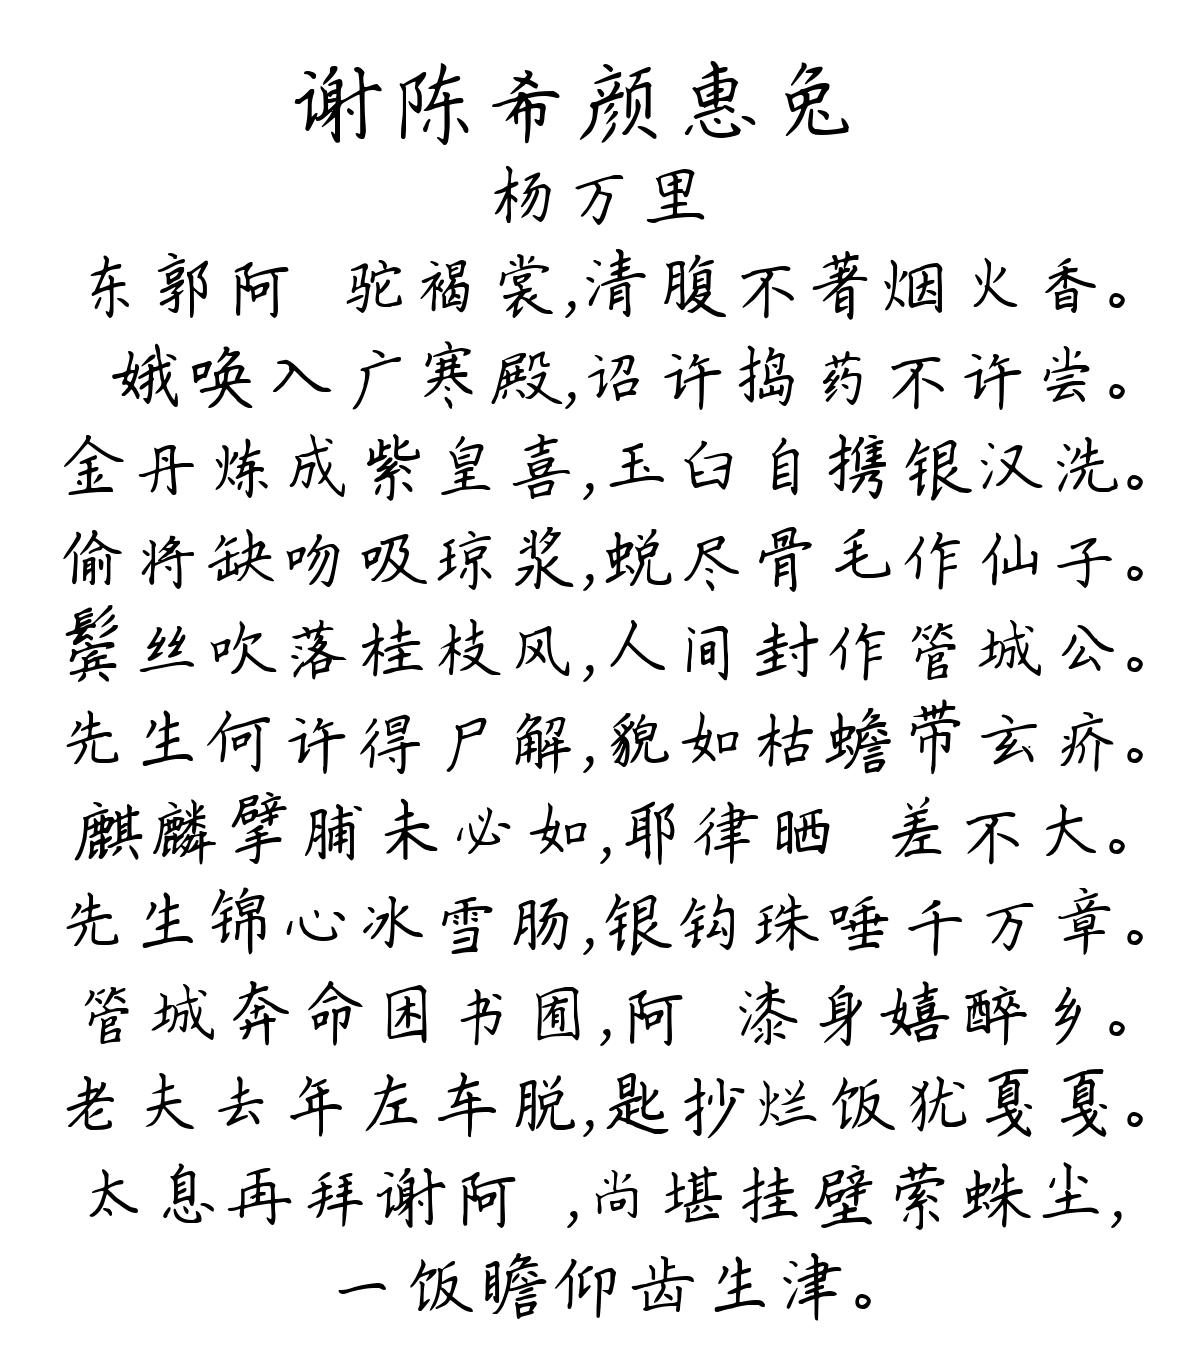 谢陈希颜惠兔
杨万里
东郭阿 驼褐裳,清腹不著烟火香。
娥唤入广寒殿,诏许捣药不许尝。
金丹炼成紫皇喜,玉臼自携银汉洗。
偷将缺吻吸琼浆,蜕尽骨毛作仙子。
鬓丝吹落桂枝风,人间封作管城公。
先生何许得尸解,貌如枯蟾带玄疥。
麒麟擘脯未必如,耶律晒 差不大。
先生锦心冰雪肠,银钩珠唾千万章。
管城奔命困书圃,阿 漆身嬉醉乡。
老夫去年左车脱,匙抄烂饭犹戛戛。
太息再拜谢阿 ,尚堪挂壁萦蛛尘,
一饭瞻仰齿生津。